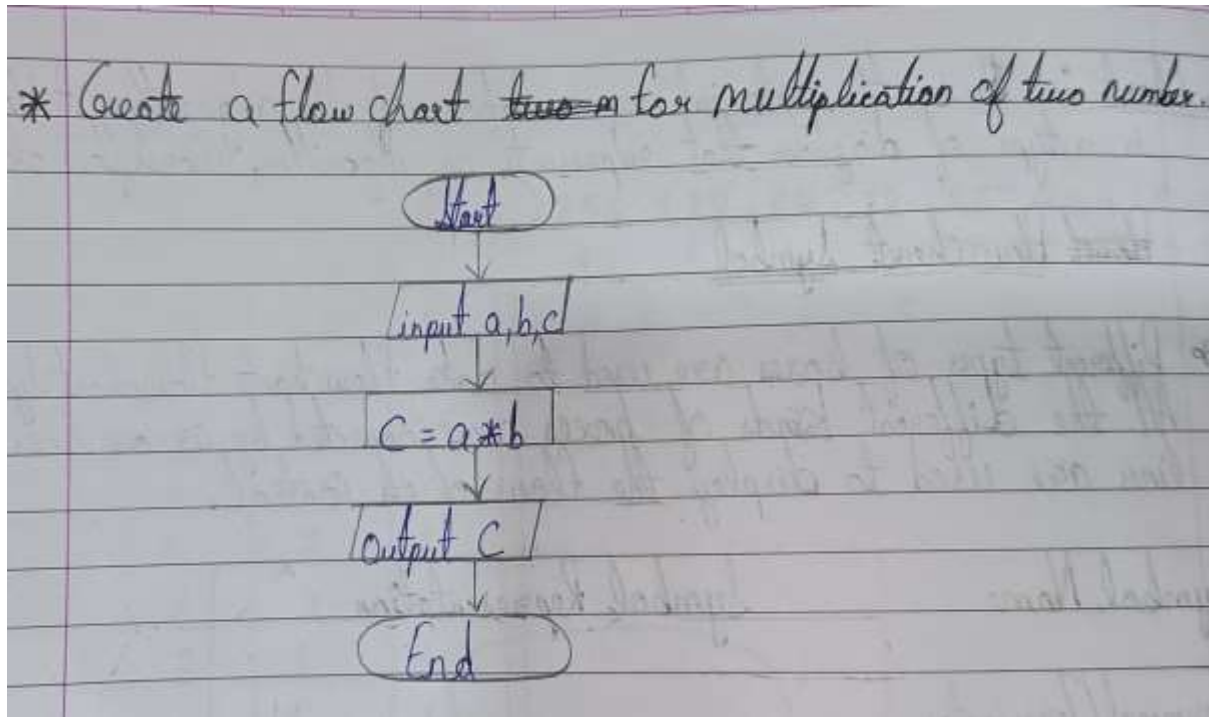 * Create a flow chart for multiplication of two number.
Start
input a,b,c
C = a*b
Output C
End